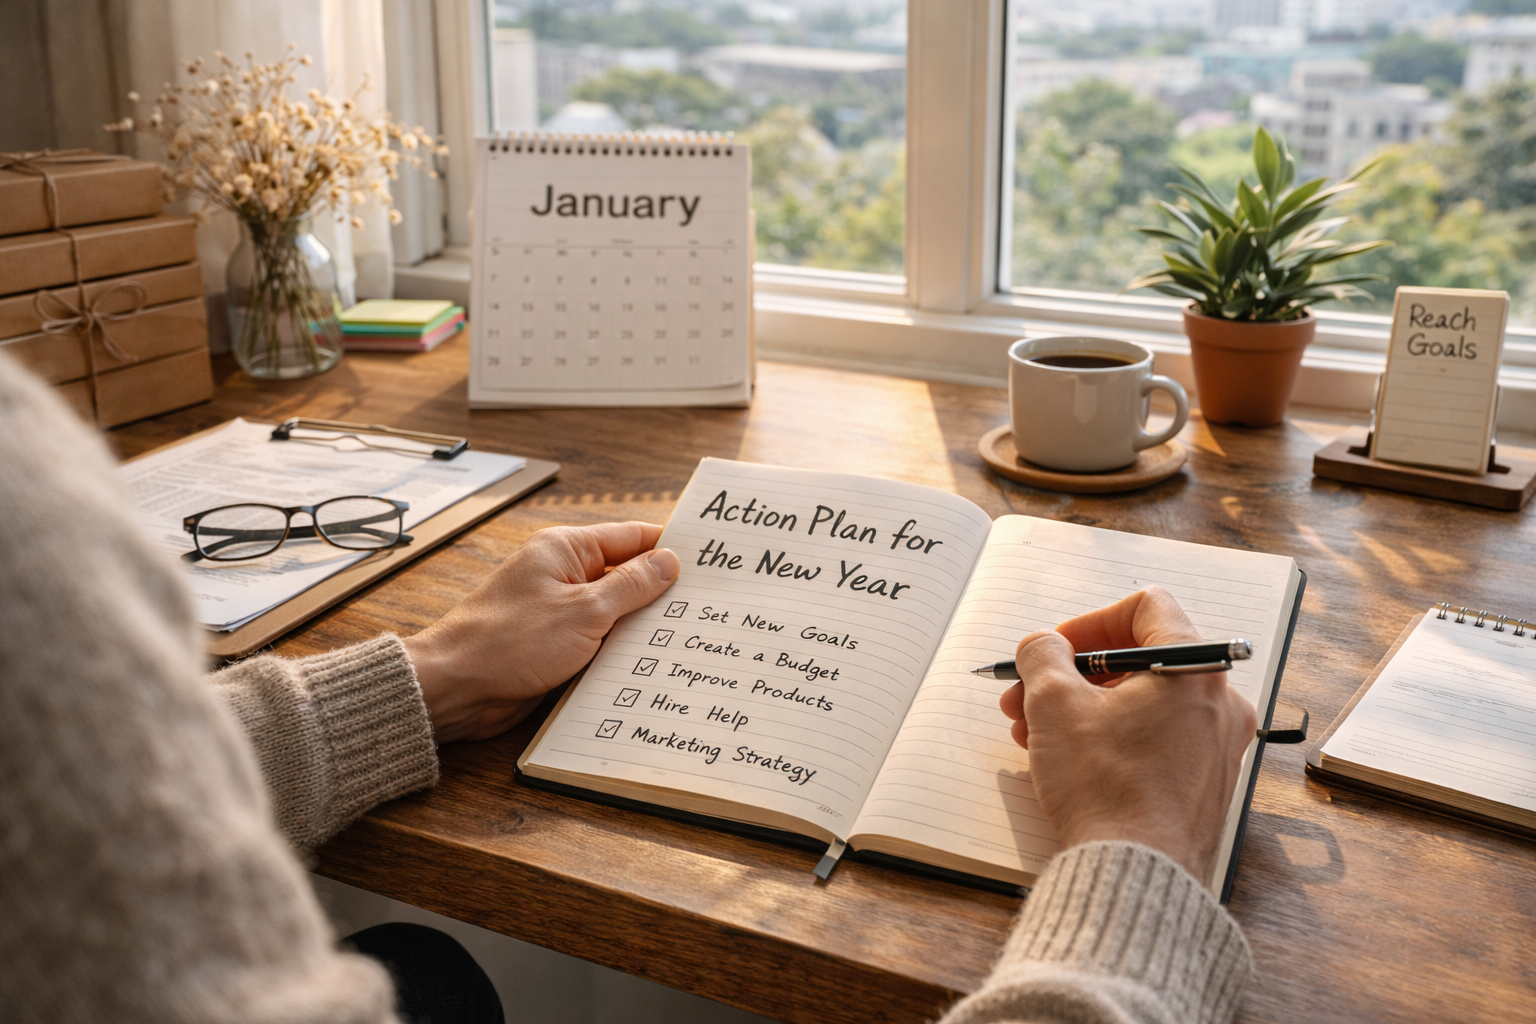 January
Reach
Goals
Action Plan for
the New Year
Set New Goals
Create a Budget
Improve Products
Hire Help
Marketing Strategy